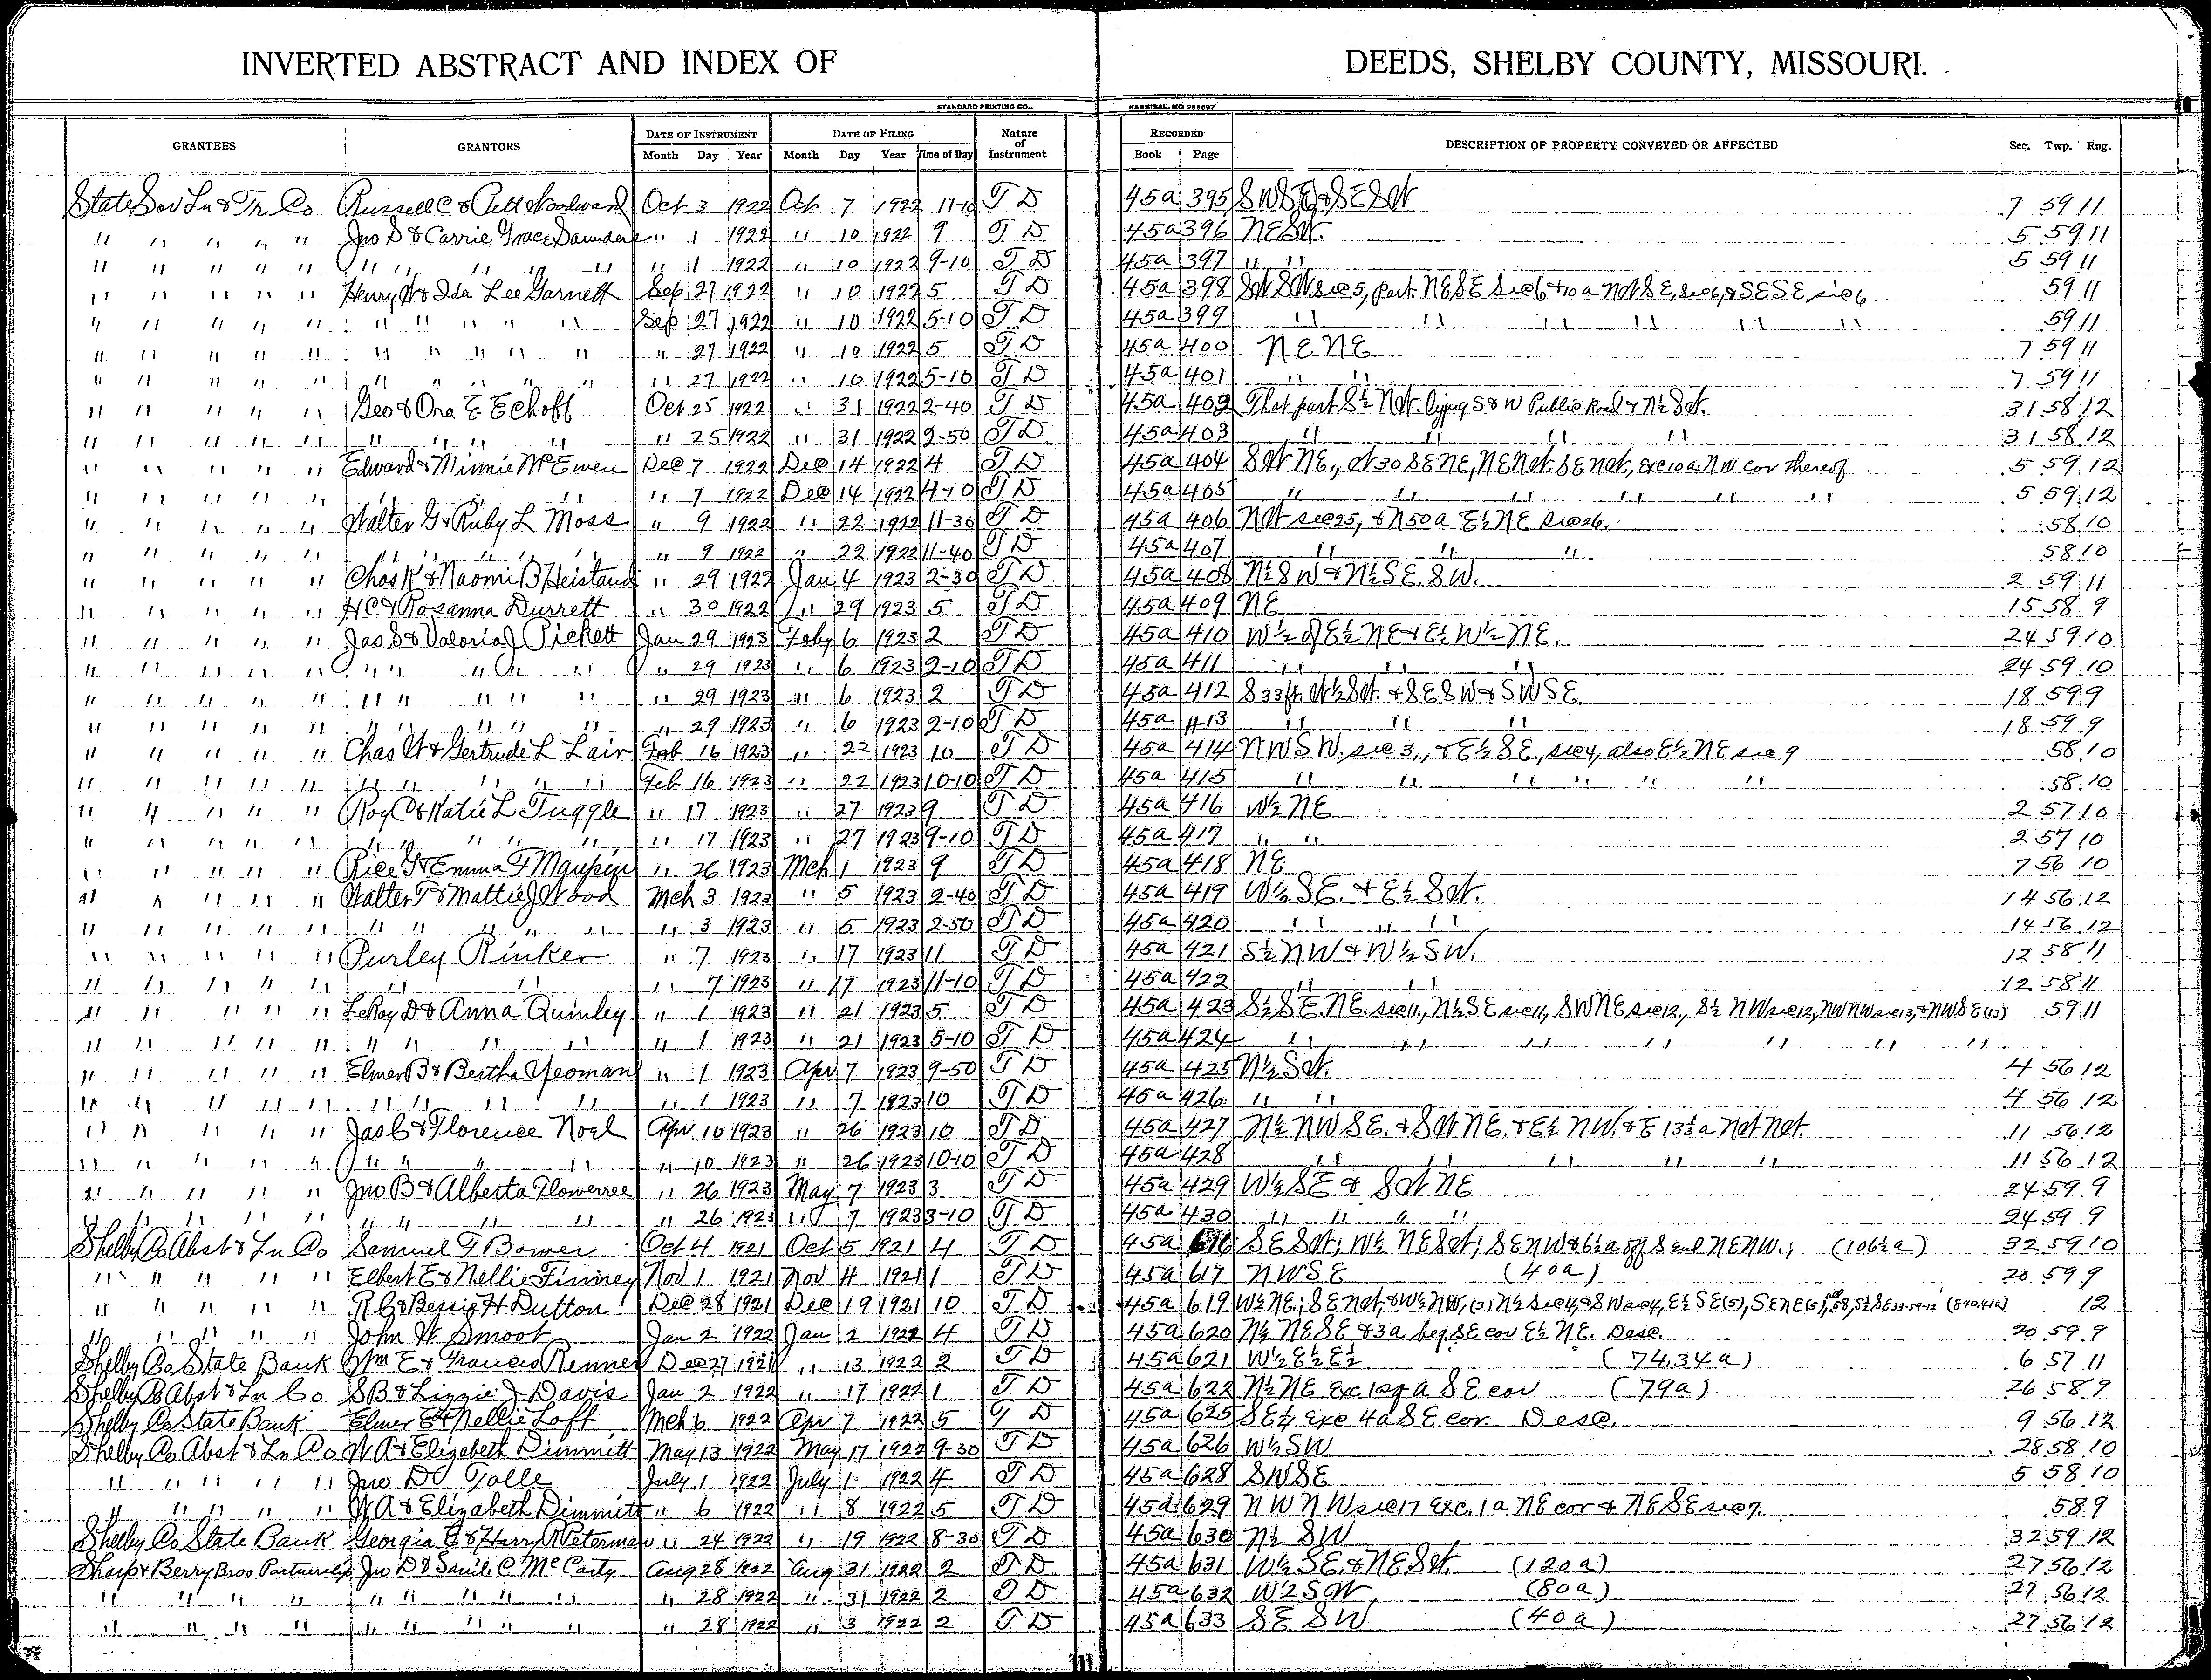 INVERTED ABSTRACT AND INDEX OF DEEDS, SHELBY COUNTY, MISSOURI.
STANDARD PRINTING CO., HANNIBAL, MO 256697
GRANTEES GRANTORS DATE OF INSTRUMENT DATE OF FILING Nature of Instrument RECORDED DESCRIPTION OF PROPERTY CONVEYED OR AFFECTED Sec. Twp. Rng.
Month Day Year Month Day Year Time of Day Book Page
State Sav Ln & Tr. Co Russell C & Woodward Oct 3 1922 Oct 7 1922 11-10 T D 45a 395 SWSE & SESW 7 59 11
" " " " " Jno S & Carrie Grace Saunders " 1 1922 " 10 1922 9 T D 45a 396 NESW. 5 59 11
" " " " " " " " " " " 1 1922 " 10 1922 9-10 T D 45a 397 " " 5 59 11
" " " " " Henry W & Ida Lee Garnett Sep 27 1922 " 10 1922 5 T D 45a 398 SW SW sec 5, part NESE Sec 6 & 10 a NWSE, sec 6, & SESE sec 6 59 11
" " " " " " " " " " Sep 27 1922 " 10 1922 5-10 T D 45a 399 " " " " " " 59 11
" " " " " " " " " " " 27 1922 " 10 1922 5 T D 45a 400 NENE 7 59 11
" " " " " " " " " " " 27 1922 " 10 1922 5-10 T D 45a 401 " " 7 59 11
" " " " " Geo & Ora E Echoff Oct 25 1922 " 31 1922 2-40 T D 45a 402 That part S½ NW. lying S & W Public Road & N½ SW. 31 58 12
" " " " " " " " " " 25 1922 " 31 1922 2-50 T D 45a 403 " " " " 31 58 12
" " " " " Edward & Minnie McEwen Dec 7 1922 Dec 14 1922 4 T D 45a 404 SW NE., W 30 SENE, NENW. SENW., exc 10a NW cor thereof 5 59 12
" " " " " " " " 7 1922 Dec 14 1922 4-10 T D 45a 405 " " " " " " 5 59 12
" " " " " Walter G & Ruby L Moss " 9 1922 " 22 1922 11-30 T D 45a 406 NW sec 25, & N50a E½ NE sec 26. 58 10
" " " " " " " " " " " 9 1922 " 22 1922 11-40 T D 45a 407 " " " 58 10
" " " " " Chas K & Naomi B Heistand " 29 1922 Jan 4 1923 2-30 T D 45a 408 N½SW & N½SE.SW. 2 59 11
" " " " " HC & Rosanna Durrett " 30 1922 " 29 1923 5 T D 45a 409 NE 15 58 9
" " " " " Jas S & Valoria J Pickett Jan 29 1923 Feby 6 1923 2 T D 45a 410 W½ of E½ NE & E½ W½ NE. 24 59 10
" " " " " " " " " " " 29 1923 " 6 1923 2-10 T D 45a 411 " " " 24 59 10
" " " " " " " " " " " 29 1923 " 6 1923 2 T D 45a 412 S 33ft. W½ SW. & SESW & SWSE. 18 59 9
" " " " " " " " " " " 29 1923 " 6 1923 2-10 T D 45a 413 " " " 18 59 9
" " " " " Chas W & Gertrude L Lair Feb 16 1923 " 22 1923 10 T D 45a 414 NWSW. sec 3., & E½ SE., sec 4, also E½ NE sec 9 58 10
" " " " " " " " " " Feb 16 1923 " 22 1923 10-10 T D 45a 415 " " " " " " 58 10
" " " " " Roy C & Katie L Tuggle " 17 1923 " 27 1923 9 T D 45a 416 W½ NE 2 57 10
" " " " " " " " " " " 17 1923 " 27 1923 9-10 T D 45a 417 " " 2 57 10
" " " " " Rice G & Emma F Maupin " 26 1923 Mch 1 1923 9 T D 45a 418 NE 7 56 10
" " " " " Walter T & Mattie J Wood Mch 3 1923 " 5 1923 2-40 T D 45a 419 W½ SE. & E½ SW. 14 56 12
" " " " " " " " " " " 3 1923 " 5 1923 2-50 T D 45a 420 " " " " 14 56 12
" " " " " Purley Rinker " 7 1923 " 17 1923 11 T D 45a 421 S½ NW & W½ SW. 12 58 11
" " " " " " " " 7 1923 " 17 1923 11-10 T D 45a 422 " " " 12 58 11
" " " " " LeRoy D & Anna Quinley " 1 1923 " 21 1923 5 T D 45a 423 S½SE.NE. sec 11, N½SE sec 11, SWNE sec 12, S½ NW sec 12, NWNW sec 13, & NWSE (13) 59 11
" " " " " " " " " " 1 1923 " 21 1923 5-10 T D 45a 424 " " " " " " " "
" " " " " Elmer B & Bertha Yeoman " 1 1923 Apr 7 1923 9-50 T D 45a 425 N½ SW. 4 56 12
" " " " " " " " " " " 1 1923 " 7 1923 10 T D 45a 426 " " 4 56 12
" " " " " Jas C & Florence Noel Apr 10 1923 " 26 1923 10 T D 45a 427 N½ NWSE. & SW NE. & E½ NW. & E 13½ a NW NW. 11 56 12
" " " " " " " " " " 10 1923 " 26 1923 10-10 T D 45a 428 " " " " " 11 56 12
" " " " " Jno B & Alberta Flowerree " 26 1923 May 7 1923 3 T D 45a 429 W½ SE & SW NE 24 59 9
" " " " " " " " " " 26 1923 " 7 1923 3-10 T D 45a 430 " " " " 24 59 9
Shelby Co Abst & Ln Co Samuel T Bower Oct 4 1921 Oct 5 1921 4 T D 45a 616 SESW; W½ NESW; SENW & 6½a off S end NENW.; (106½a) 32 59 10
" " " " " Elbert E & Nellie Finney Nov 1 1921 Nov 4 1921 1 T D 45a 617 NWSE (40a) 20 59 9
" " " " " R C & Bessie H Dutton Dec 28 1921 Dec 19 1921 10 T D 45a 619 W½NE; SENW, & W½NW, (3) N½ sec 4, & SW sec 4, E½ SE (5), SENE (5), all 58, S½ SE 33-59-12 (840.41a) 12
" " " " " John W Smoot Jan 2 1922 Jan 2 1922 4 T D 45a 620 N½ NESE & 3a beg. SE cor E½ NE. Desc. 20 59 9
Shelby Co State Bank Wm E & Francis Renner Dec 27 1921 " 13 1922 2 T D 45a 621 W½ E½ E½ (74.34a) 6 57 11
Shelby Co Abst & Ln Co SB & Lizzie J Davis Jan 2 1922 " 17 1922 1 T D 45a 622 N½ NE exc 1 sq a SE cor (79a) 26 58 9
Shelby Co State Bank Elmer E & Nellie Loft Mch 6 1922 Apr 7 1922 5 T D 45a 625 SE¼ exc 4a SE cor. Desc. 9 56 12
Shelby Co Abst & Ln Co WA & Elizabeth Dimmitt May 13 1922 May 17 1922 9-30 T D 45a 626 W½ SW 28 58 10
" " " " " Jno D Tolle July 1 1922 July 1 1922 4 T D 45a 628 SWSE 5 58 10
" " " " " WA & Elizabeth Dimmitt " 6 1922 " 8 1922 5 T D 45a 629 NWNW sec 17 exc. 1a NE cor & NESE sec 7. 58 9
Shelby Co State Bank Georgia E & Harry R Peterman " 24 1922 " 19 1922 8-30 T D 45a 630 N½ SW 32 59 12
Sharp & Berry Bros Partnership Jno D & C McCarty Aug 28 1922 Aug 31 1922 2 T D 45a 631 W½ SE. & NESW. (120a) 27 56 12
" " " " " " " " " " 28 1922 " 31 1922 2 T D 45a 632 W½ SW (80a) 27 56 12
" " " " " " " " " " 28 1922 " 3 1922 2 T D 45a 633 SE SW (40a) 27 56 12